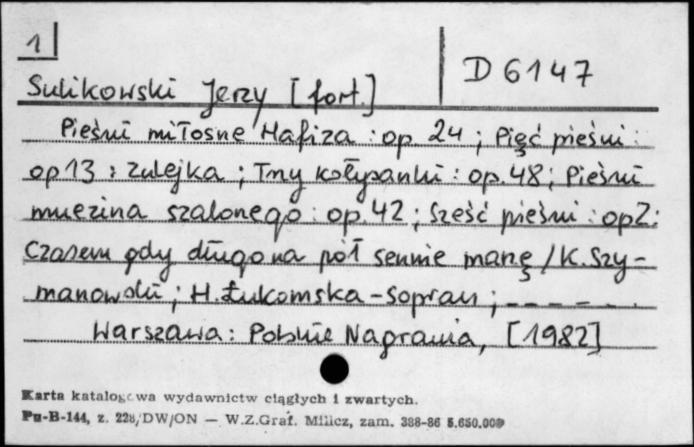 1
D 6147
Sulikowski Jerzy [fort.]
Pieśni miłosne Hafiza : op. 24 ; Pięć pieśni :
op 13 : Zulejka ; Trzy kołysanki : op. 48 ; Pieśni
muezina szalonego : op. 42 ; Sześć pieśni : op 2 :
Czasem gdy długo na pół sennie marzę / K. Szy-
manowski ; H. Łukomska - sopran ; _ _ _ _ _ .
Warszawa : Polskie Nagrania, [1982]
Karta katalogowa wydawnictw ciągłych i zwartych.
Pu-B-144, z. 228/DW/ON — W.Z.Graf. Milicz, zam. 388-86 5.650.000